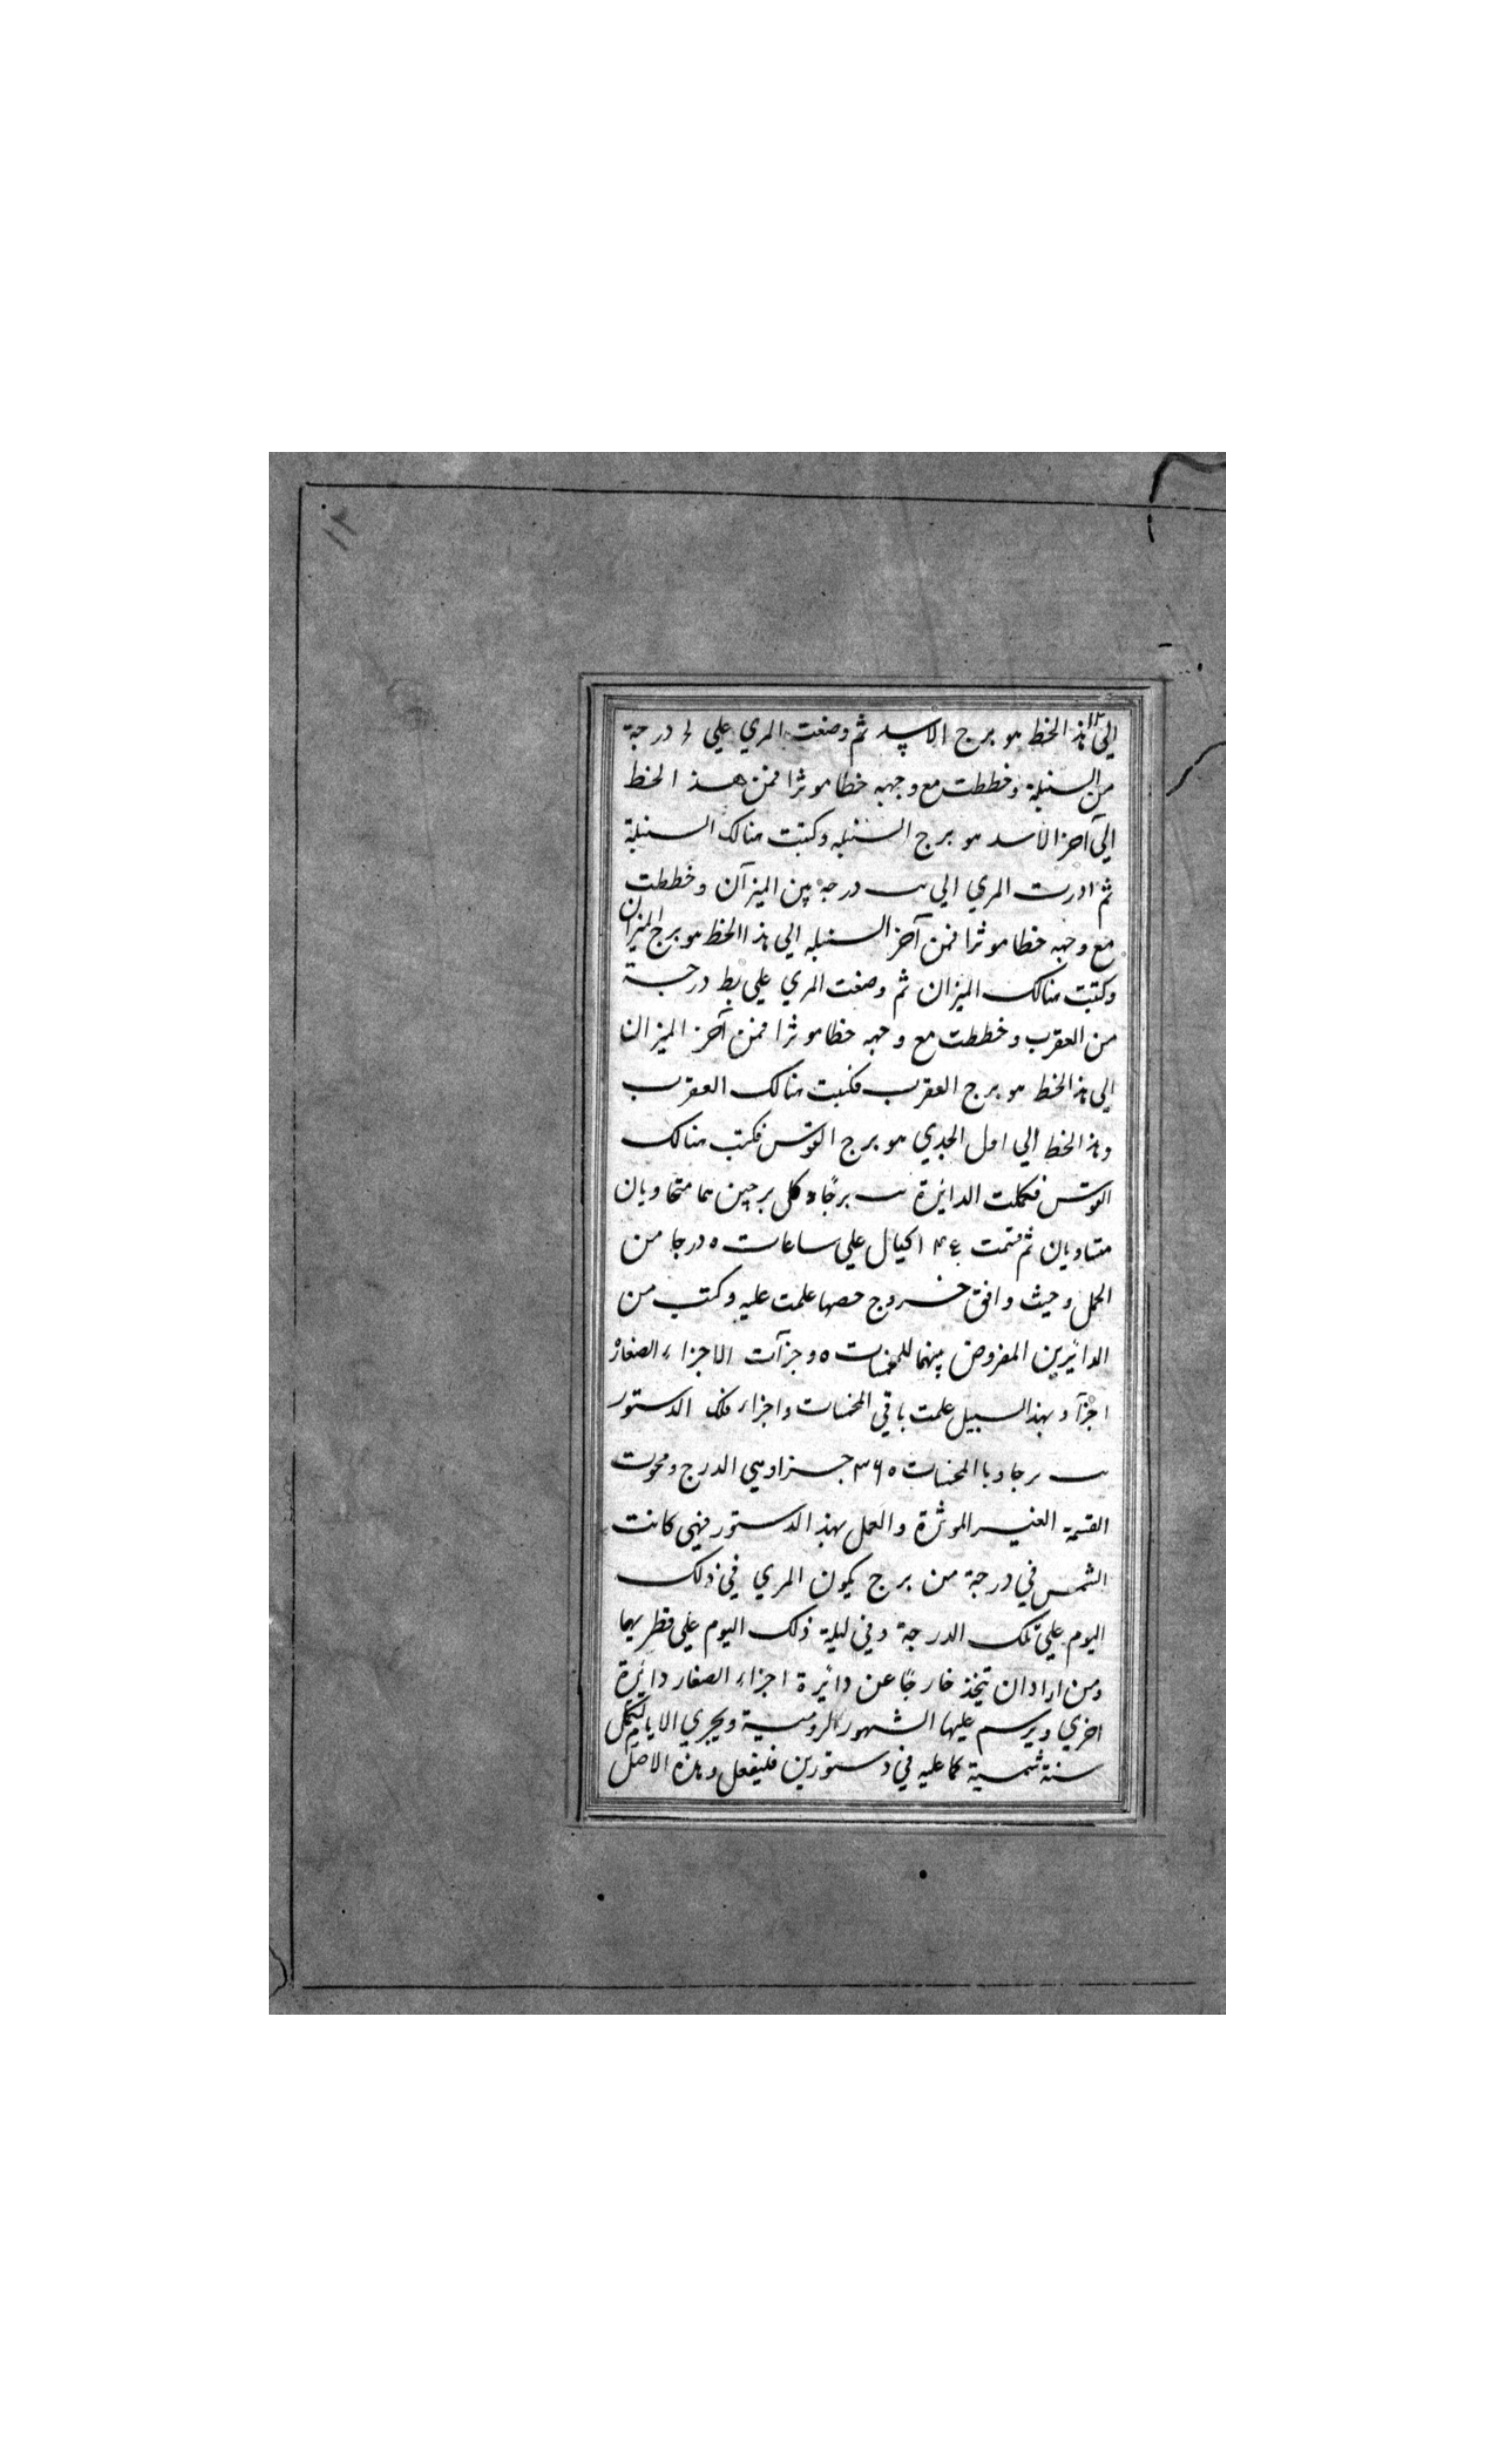 ١٢
الي هذا الخط هو برج الاسد ثم وضعت المري علي ل درجة
من السنبلة وخططت مع وجهه خطا موثرا فمن هذا الخط
الي آخر الاسد هو برج السنبله وكتبت هنالك السنبلة
ثم ادرت المري الي يب درجة من الميزان وخططت
مع وجهه خطا موثرا فمن آخر السنبله الي هذا الخط هو برج الميزان
وكتبت هنالك الميزان ثم وضعت المري علي يط درجة
من العقرب وخططت مع وجهه خطا موثرا فمن آخر الميزان
الي هذا الخط هو برج العقرب فكتبت هنالك العقرب
وهذا الخط الي اول الجدي هو برج القوس فكتبت هنالك
القوس فكملت الدائرة يب برجا وكل برجين هما متحاويان
متساويان ثم قسمت اكيال علي ساعات ٥ درجا من
الحمل وحيث وافق خروج حصها علمت عليه وكتب من
الدائرين المفروض بينهما للمخمسات ٥ وجزآت الاجزاء الصغار
اجزآ وبهذا السبيل علمت باقي المخمسات واجزاء فلك الدستور
يب برجا وبا المخمسات ٣٦٥ جزا وهي الدرج ومحوت
القسمة الغير الموثرة والعمل بهذا الدستور فهي كانت
الشمس في درجة من برج يكون المري في ذلك
اليوم علي تلك الدرجة وفي ليلة ذلك اليوم علي قطريهما
ومن اراد ان يتخذ خارجًا عن دائرة اجزاء الصغار دائرة
اخري ويرسم عليها الشهور الرومية ويجري الايام لتكمل
سنة شمسية كما عليه في دستورين فليفعل وهذه الاصل